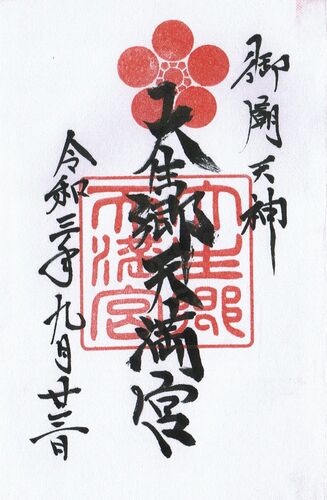 御廟天神
大生郷天満宮
大生郷
天満宮
令和三年九月廿三日